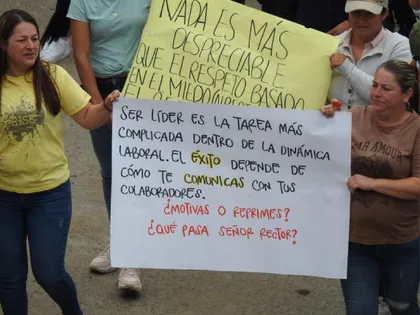 NADA ES MÁS
DESPRECIABLE
QUE EL RESPETO BASADO
EN EL MIEDO
SER LÍDER ES LA TAREA MÁS
COMPLICADA DENTRO DE LA DINÁMICA
LABORAL. EL ÉXITO DEPENDE DE
CÓMO TE COMUNICAS CON TUS
COLABORADORES.
¿MOTIVAS O REPRIMES?
¿QUÉ PASA SEÑOR RECTOR?